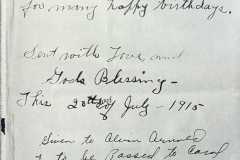 for many happy birthdays.
Sent with Love and
Gods Blessing -
This 20th of July - 1915
Given to Alvin
to be Passed to